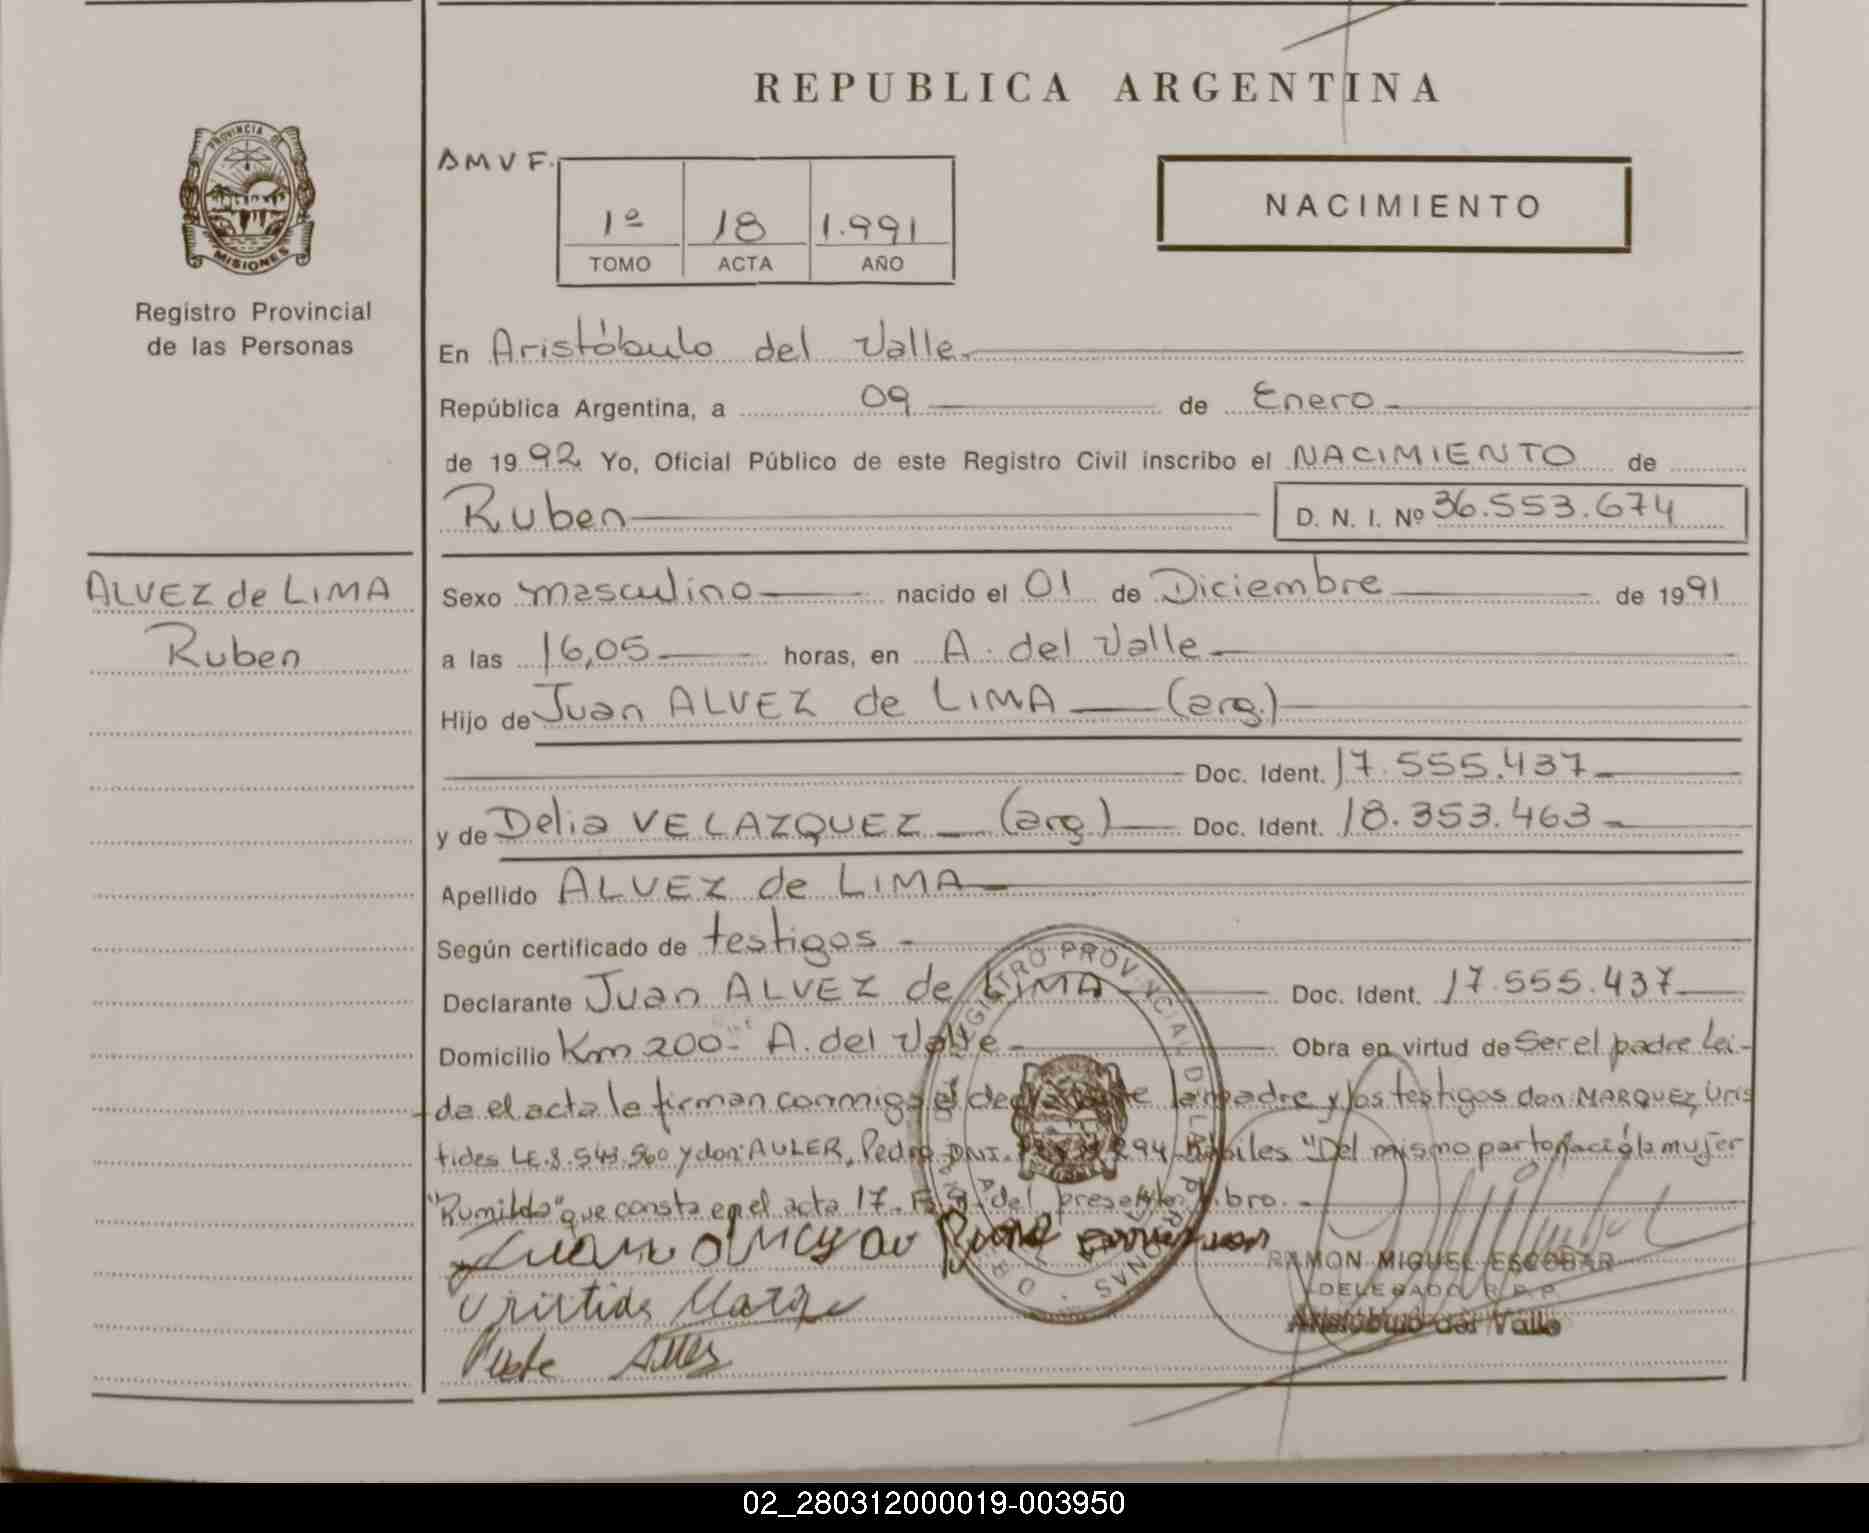 REPUBLICA ARGENTINA
PROVINCIA DE
MISIONES
Registro Provincial
de las Personas
AMVF.
1º 18 1.991
TOMO ACTA AÑO
NACIMIENTO
En Aristóbulo del Valle
República Argentina, a 09 de Enero
de 1992 Yo, Oficial Público de este Registro Civil inscribo el NACIMIENTO de
Ruben D. N. I. Nº 36.553.674
ALVEZ de LIMA
Ruben
Sexo masculino nacido el 01 de Diciembre de 1991
a las 16,05 horas, en A. del Valle
Hijo de Juan ALVEZ de LIMA (arg.)
Doc. Ident. 17.555.437
y de Delia VELAZQUEZ (arg) Doc. Ident. 18.353.463
Apellido ALVEZ de LIMA
Según certificado de testigos
Declarante Juan ALVEZ de LIMA Doc. Ident. 17.555.437
Domicilio Km 200- A. del Valle Obra en virtud de Ser el padre Lei-
da el acta la firman conmigo el declarante la madre y los testigos don MARQUEZ, Uris
tides LE.8.543.560 y don AULER, Pedro DNI. 294 Hábiles "Del mismo parto nació la mujer
"Rumilda" que consta en el acta 17. del presente libro.
REGISTRO PROVINCIAL DE LAS PERSONAS
Uristides
RAMON MIGUEL ESCOBAR
DELEGADO R.P.P.
Aristóbulo del Valle
02_280312000019-003950